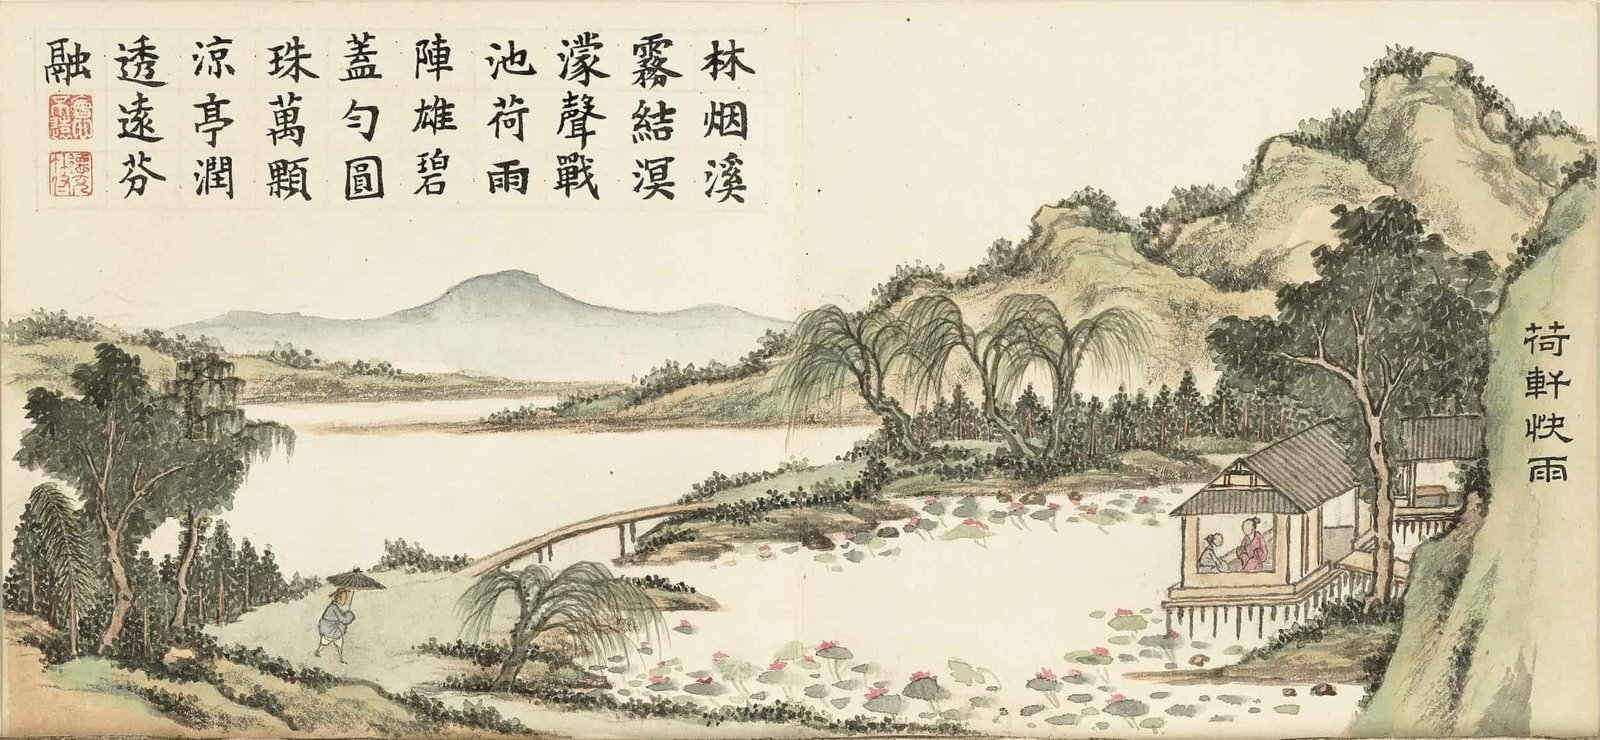 林烟溪
霧結溟
濛聲戰
池荷雨
陣雄碧
蓋勻圓
珠萬顆
涼亭潤
透遠芬
融
荷軒快雨